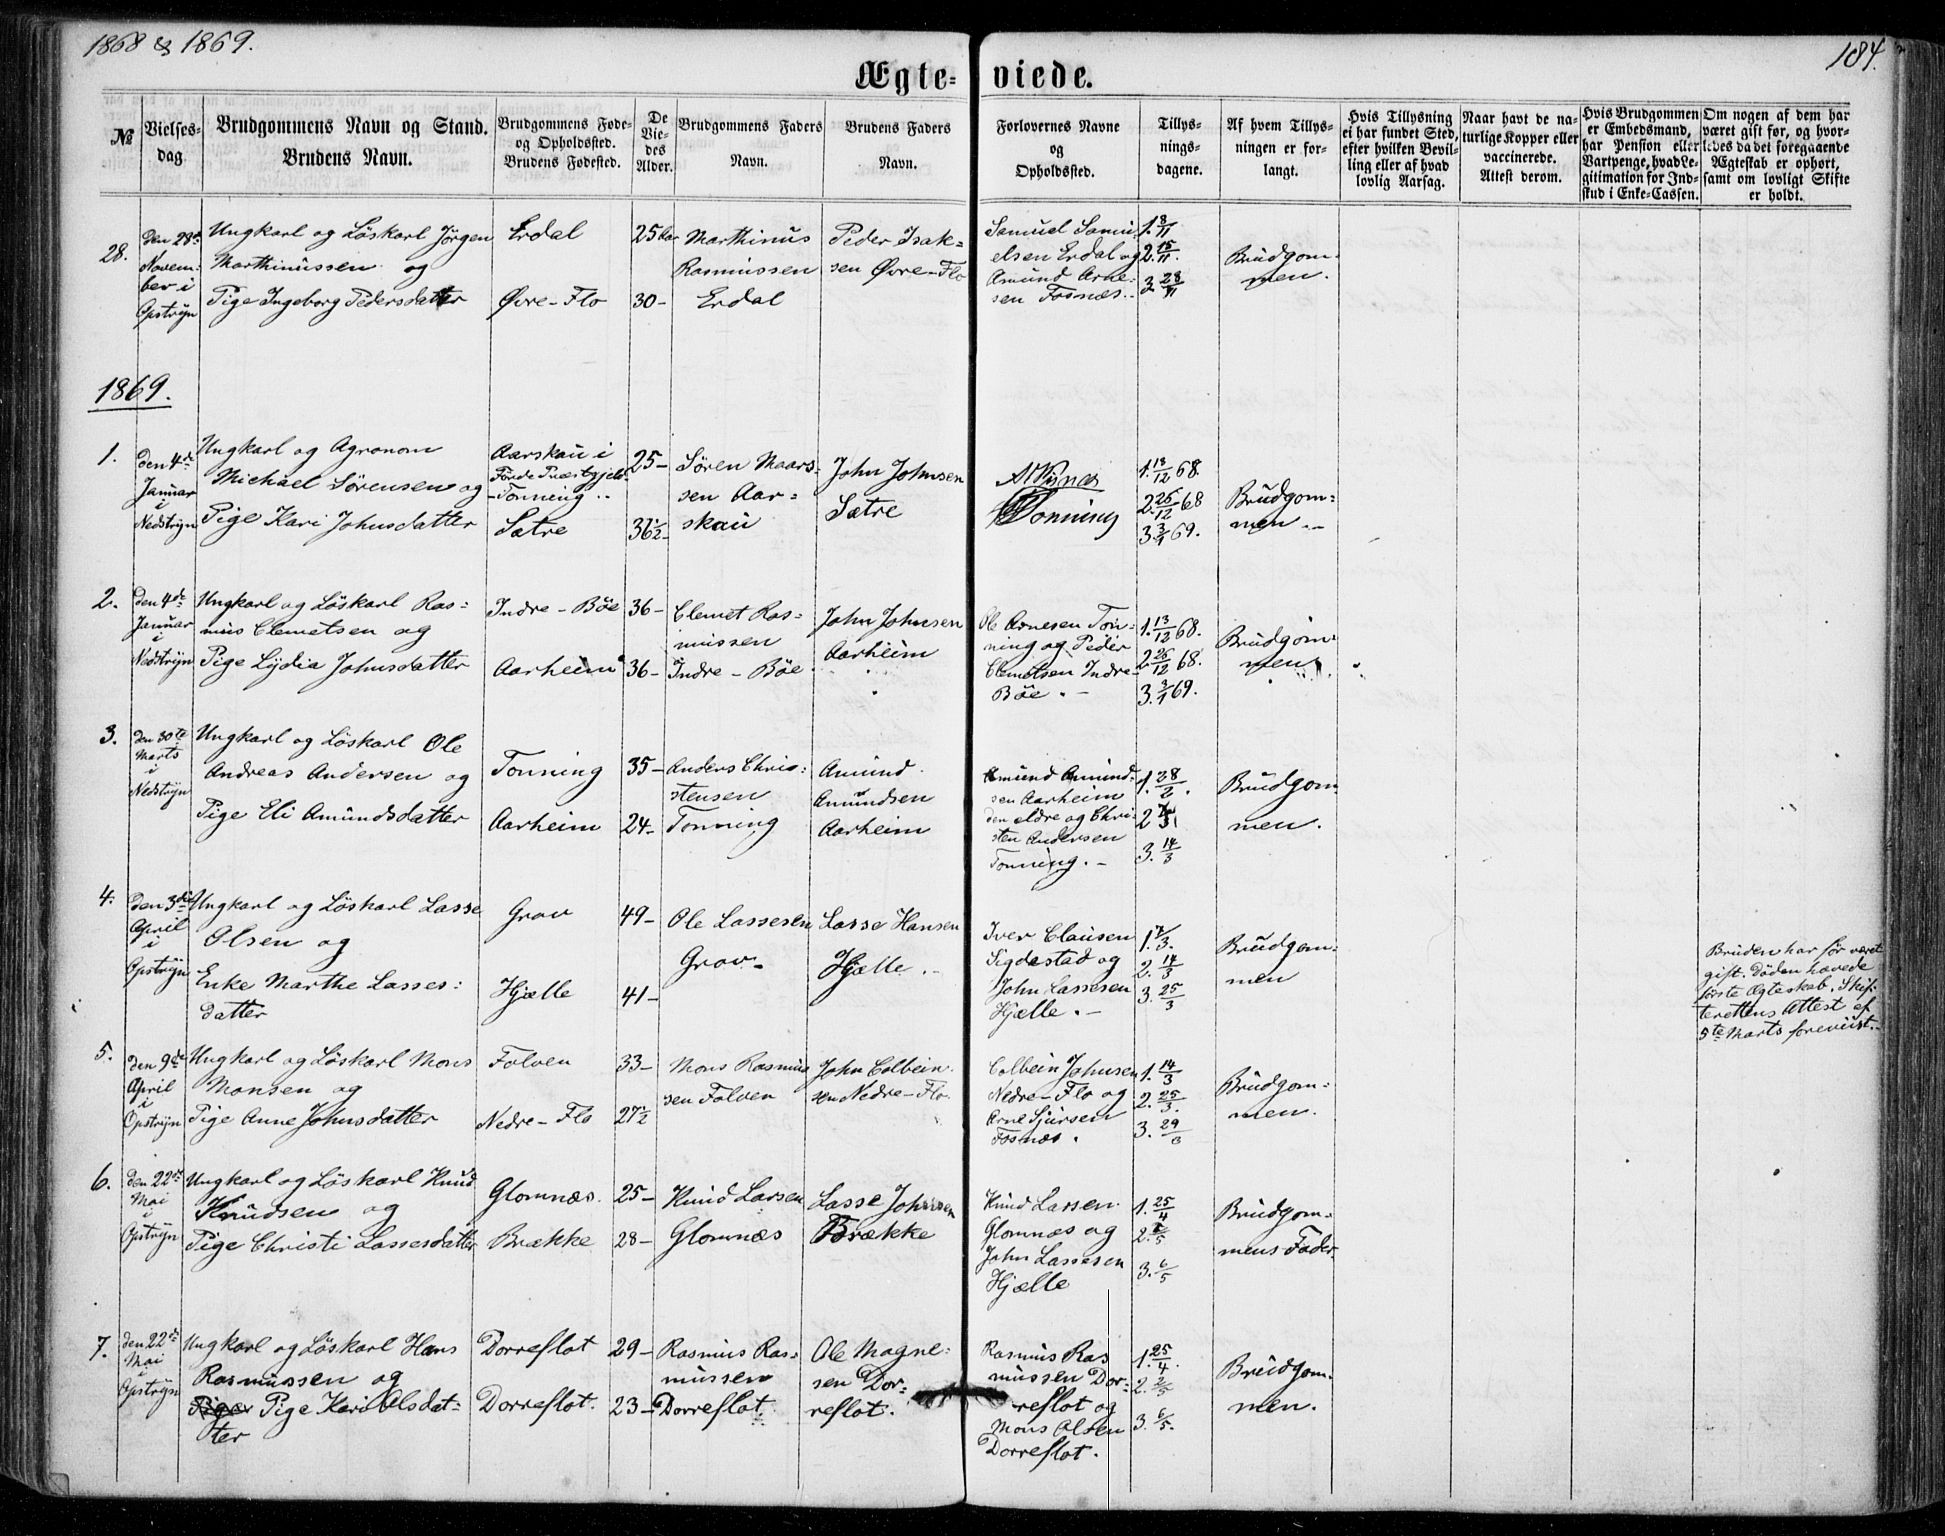 1868 & 1869.
184.
Ægte-viede.
№
Vielses-dag.
Brudgommens Navn og Stand.
Brudens Navn.
Brudgommens Føde-
og Opholdssted.
Brudens Fødested.
De
Vie-
des
Alder.
Brudgommens Faders
Navn.
Brudens Faders
Navn.
Forlovernes Navne
og
Opholdssted.
Tillys-
nings-
dagene.
Af hvem Tillys-
ningen er for-
langt.
Hvis Tillysning
ei har fundet Sted,
efter hvilken Bevil-
ling eller af hvad
lovlig Aarsag.
Naar havt de na-
turlige Kopper eller
vaccinerede.
Attest derom.
Hvis Brudgommen
er Embedsmand,
har Pension eller
Vartpenge, hvad Le-
gitimation for Ind-
skud i Enke-Cassen.
Om nogen af dem har
været gift før, og hvor-
ledes da det foregaaende
Ægteskab er ophørt,
samt om lovligt Skifte
er holdt.
28.
den 28de
Novem-
ber i
Opstryn
Ungkarl og Löskarl Jörgen
Marthinussen og
Pige Ingeborg Pedersdatter
Erdal
Øvre-Flo
25 Aar
30-
Marthinus
Rasmussen
Erdal
Peder Isak=
sen Øvre-Flo
Samuel Samu
elsen Erdal og
Amund Arne-
sen Fosnæs.-
1. 8/11
2. 15/11.
3. 28/11
Brudgom-
men.
1869.
1.
den 4de
Januar
i
Nedstryn
Ungkarl og Agronom
Michael Sörensen og
Pige Kari Johnsdatter
Aarskau i
Förde Præstgjeld-
-Tonning..
Sætre
25-
36½-
Sören Maars-
sen Aar=
skau
John Johnsen
Sætre
Tonning
1. 13/12 68.
2. 26/12 68
3. 3/1 69.
Brudgom=
men.-
2.
den 4de
Januar
i
Nedstryn
Ungkarl og Löskarl Ras=
mus Clemetsen og
Pige Lydia Johnsdatter
Indre-Böe
Aarheim
36-
36-
Clemet Ras=
mussen
Indre-Böe
John Johnsen
Aarheim
Ole Arnesen Ton=
ning og Peder
Clemetsen Indre-
Böe.-
1. 13/12 68.
2. 26/12 68.
3. 3/1 69.
Brudgom-
men.
3.
den 30te
Marts
i
Nedstryn
Ungkarl og Löskarl Ole
Andreas Andersen og
Pige Eli Amundsdatter
Tonning
Aarheim
35-
24-
Anders Chris=
stensen
Tonning
Amund
Amundsen
Aarheim
Amund Amund-
sen Aarheim
den eldre og Chri-
sten Andersen
Tonning.-
1. 28/2.
2. 7/3
3. 14/3
Brudgom-
men.
4.
den 3die
April
i
Opstryn
Ungkarl og Löskarl Lasse
Olsen og
Enke Marthe Lasses=
datter
Grov
Hjælle
49-
41-
Ole Lassesen
Grov-
Lasse Hansen
Hjælle.-
Iver Clausen
Sigdestad og
John Lassesen
Hjælle.-
1. 7/3.
2. 14/3
3. 25/3
Brudgom-
men
Bruden har för været
gift. Döden hævede
förste Ægteskab. Skif-
terettens Attest af
5te Marts foreviist.-
5.
den 9de
April
i
Opstryn
Ungkarl og Löskarl Mons
Monsen og
Pige Anne Johnsdatter
Folven
Nedre-Flo
33-
27½
Mons Rasmus
sen Folven
John Colbein-
sen Nedre-Flo.
Colbein Johnsen
Nedre-Flo og
Arne Sjursen
Fosnæs.
1. 14/3
2. 25/3.
3. 29/3
Brudgom=
men.
6.
den 22de
Mai
i
Opstryn
Ungkarl og Löskarl Knud
Knudsen og
Pige Christi Lassesdatter
Glomnæs.
Brække
25-
28-
Knud Larsen
Glomnæs
Lasse Johnsen
Brække
Knud Larsen
Glomnæs og
John Lassesen
Hjælle
1. 25/4
2. 2/5
3. 6/5
Brudgom=
mens Fader.
7.
den 22de
Mai
i
Opstryn
Ungkarl og Löskarl Hans
Rasmussen og
Pige Kari Olsdat=
ter
Dorreflot
Dorreflot.
29-
23-
Rasmus Ras=
mussen
Dorreflot
Ole Magne=
sen Dor=
reflot.
Rasmus Ras
mussen Dor=
reflot og
Mons Olsen
Dorreflot.
1. 25/4.
2. 2/5
3. 6/5.
Brudgom-
men.